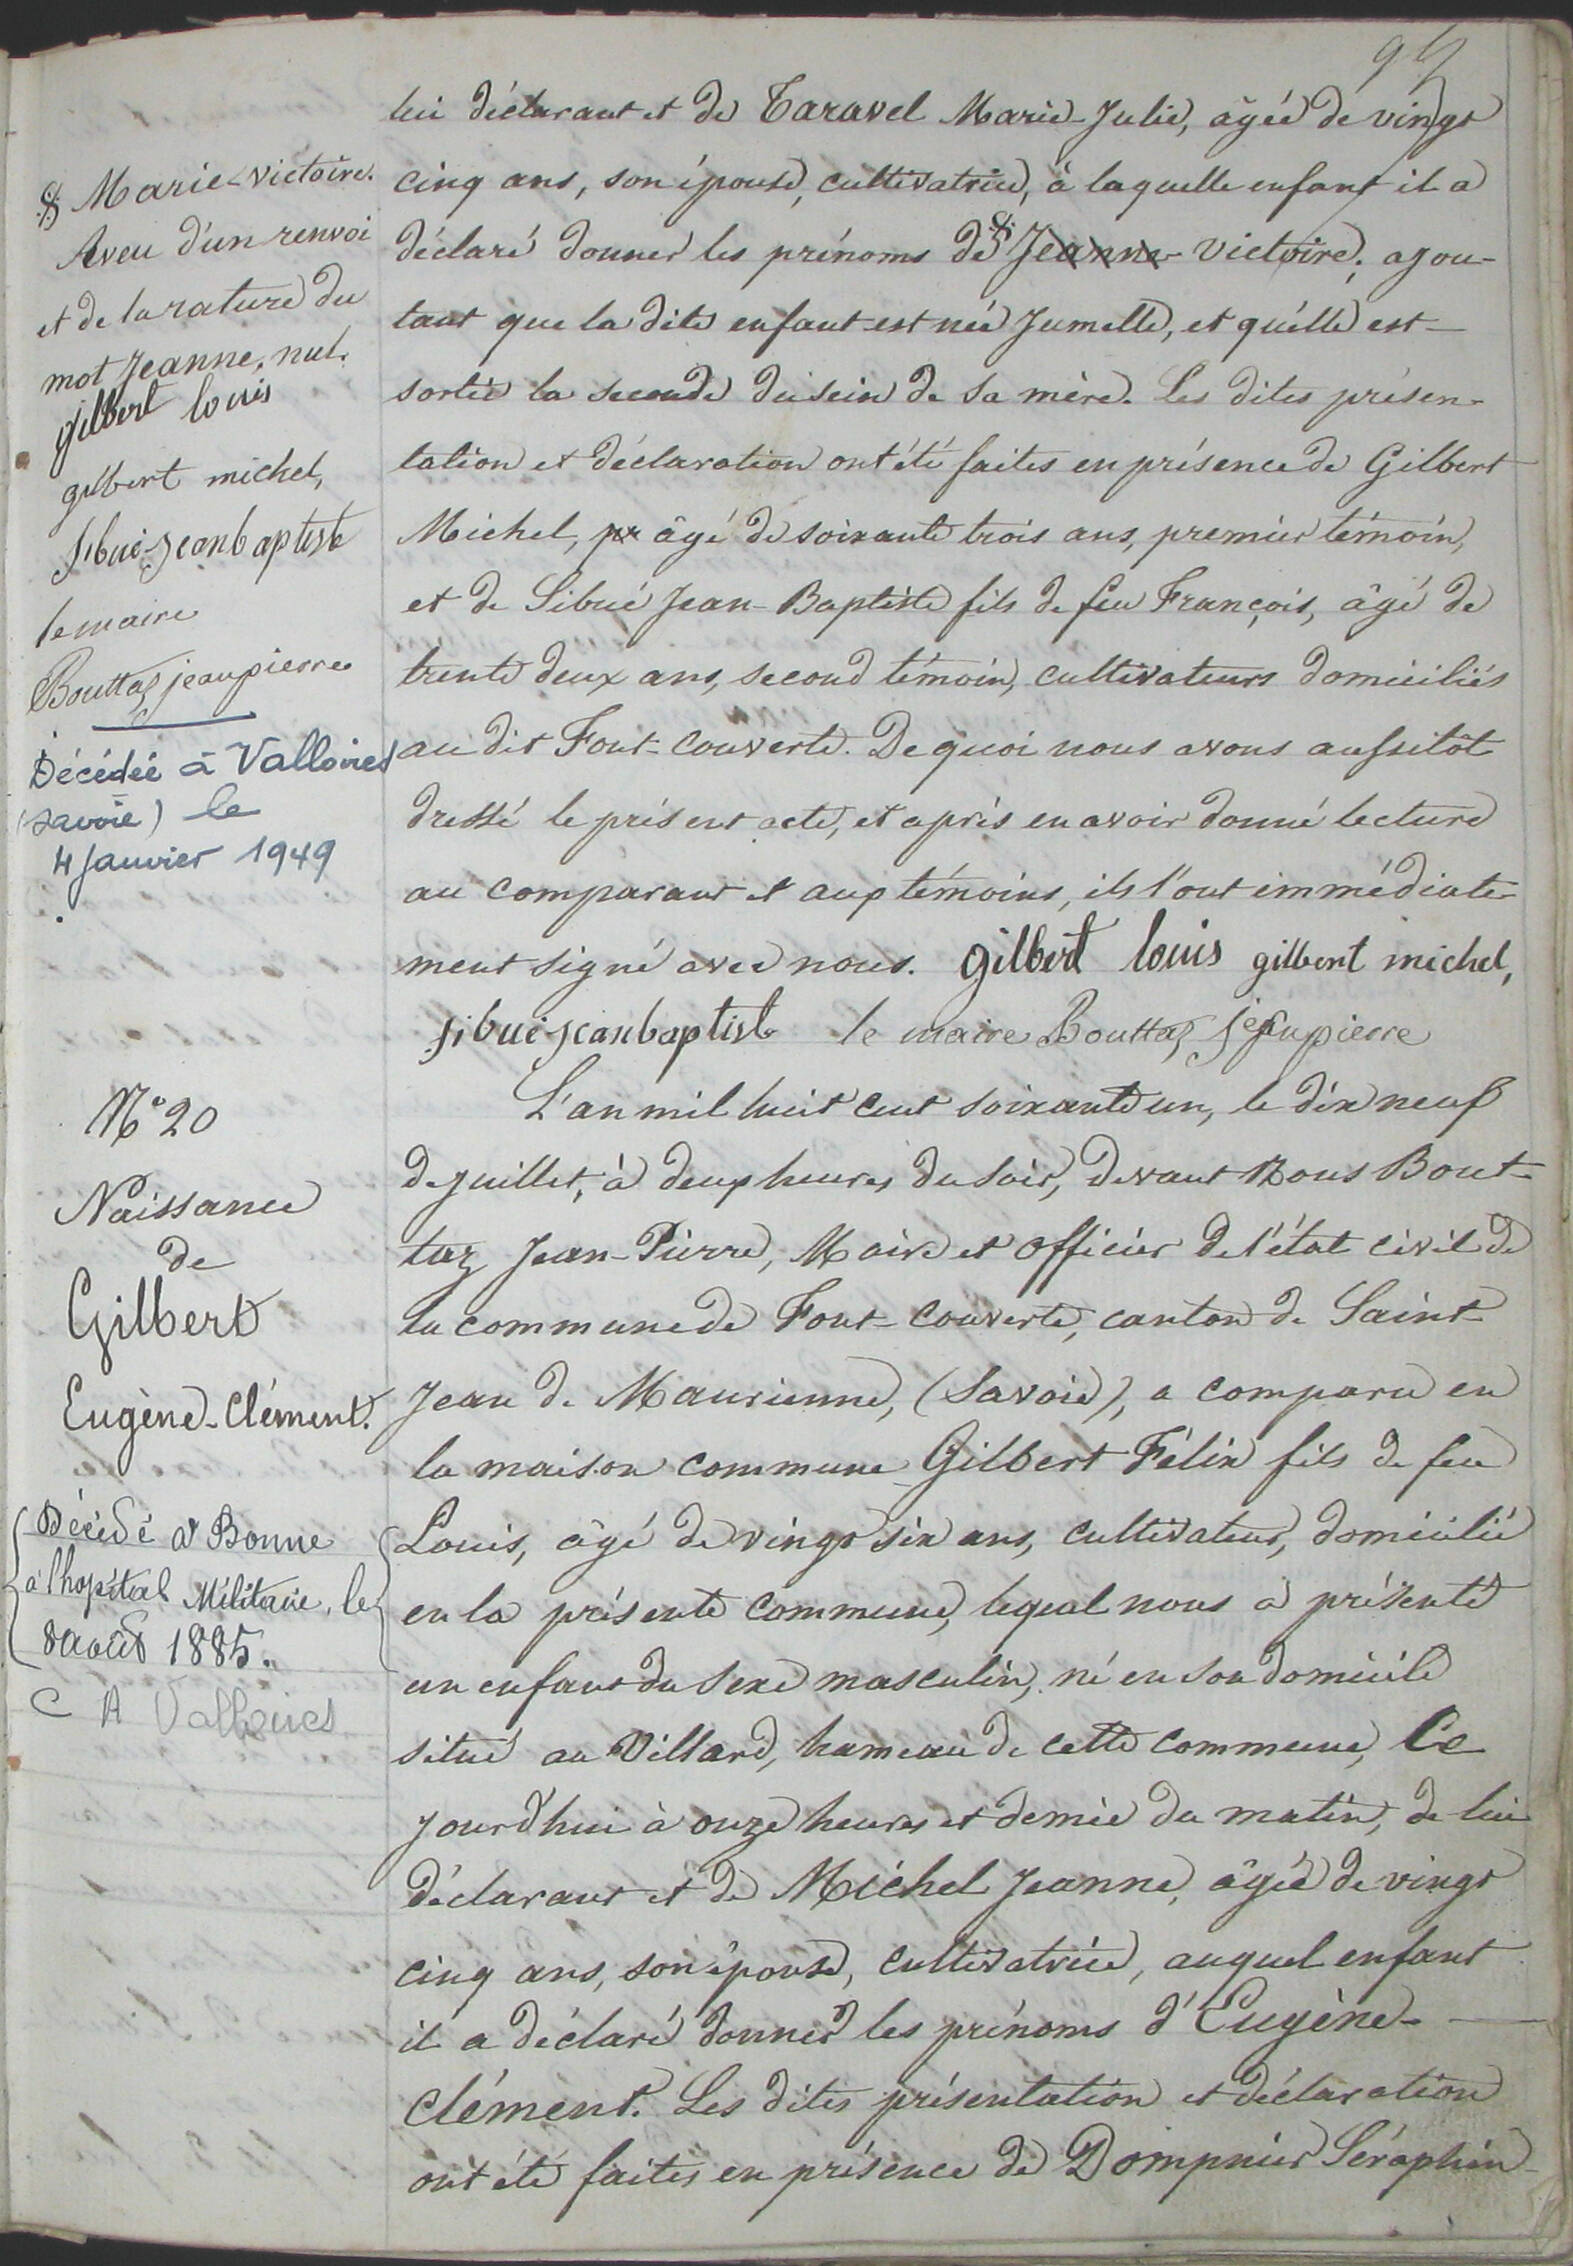 lui déclarant et de Taravel Marie-Julie, âgée de vingt
cinq ans, son épouse, cultivatrice, à laquelle enfant il a
déclaré donner les prénoms de § Jeanne-Victoire; ajou-
tant que la dite enfant est née Jumelle, et qu'elle est
sortie la seconde du sein de sa mère. Les dites présen-
tation et déclaration ont été faites en présence de Gilbert
Michel, âgé de soixante trois ans, premier témoin,
et de Sibué Jean-Baptiste fils de feu François, âgé de
trente deux ans, second témoin, cultivateurs domiciliés
au dit Font-couverte. De quoi nous avons aussitôt
dressé le présent acte, et après en avoir donné lecture
au comparant et aux témoins, ils l'ont immédiate-
ment signé avec nous. gilbert louis gilbert michel,
sibué jeanbaptiste le maire Bouttaz jeanpierre
§ Marie-victoire.
Aveu d'un renvoi
et de la rature du
mot Jeanne, nul.
gilbert louis
gilbert michel,
sibué jeanbaptiste
le maire
Bouttaz jeanpierre
Décédée à Valloires
(Savoie) le
4 Janvier 1949
N° 20
Naissance
de
Gilbert
Eugène-Clément.
Décédé à Bonne
à l'hopital Militaire, le
8 août 1885.
C A Valloires
L'an mil huit cent soixante un, le dix neuf
de juillet, à deux heures du soir, devant Nous Bout-
taz Jean-Pierre, Maire et officier de l'état civil de
la commune de Font-couverte, canton de Saint-
Jean de Maurienne, (Savoie), a comparu en
la maison commune Gilbert Félix fils de feu
Louis, âgé de vingt six ans, cultivateur, domicilié
en la présente commune, lequel nous a présenté
un enfant du sexe masculin, né en son domicile
situé au Villard, hameau de cette commune, Ce
jourd'hui à onze heures et demie du matin, de lui
déclarant et de Michel Jeanne, âgée de vingt
cinq ans, son épouse, cultivatrice, auquel enfant
il a déclaré donner les prénoms d'Eugène-
clément. Les dites présentation et déclaration
ont été faites en présence de Dompnier Séraphin